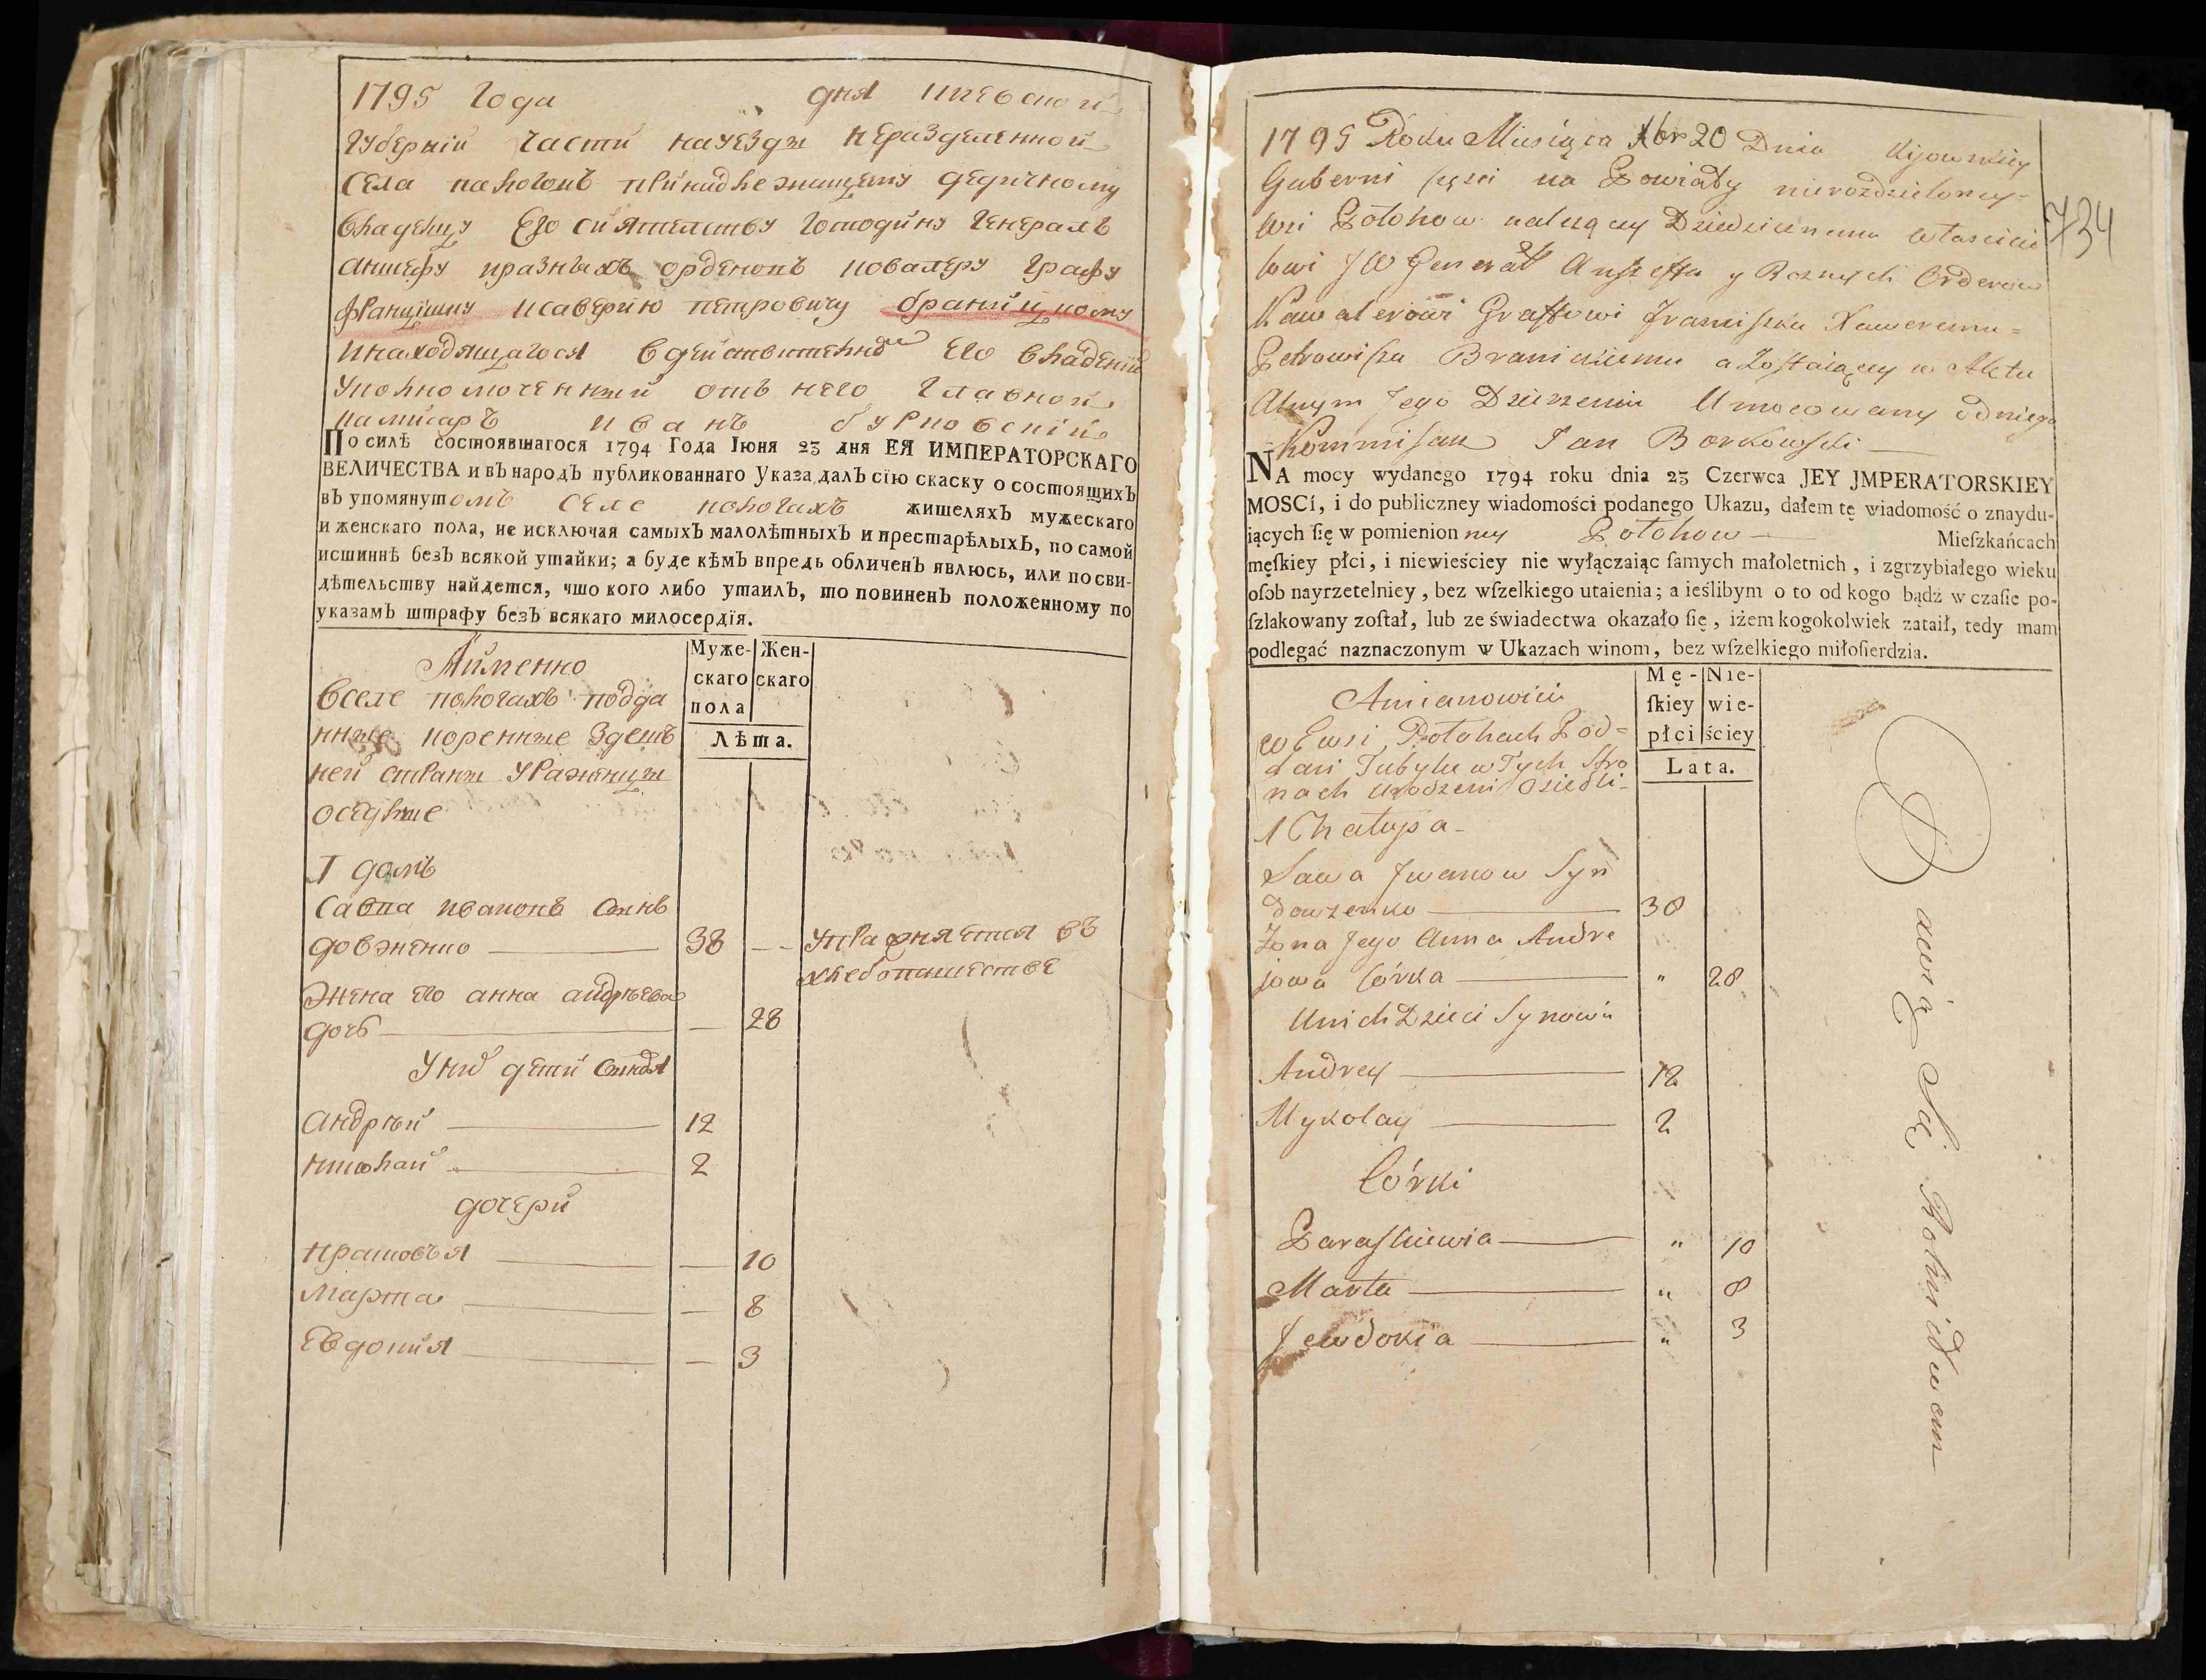 1795 Года дня Киевской
Губернїи части науезди неразделенной
Села пологовъ принадлежащему дедичному
владелцу Его сиятелству Господину Генералъ
аншефу и разныхъ орденовъ кавалеру Графу
Францишку Ксаверию петровичу браницкому
и находящагося в действителном его владении
уполномоченный отъ него Главной
Иванъ бурковский
По силѣ состоявшагося 1794 Года Іюня 23 дня ЕЯ ИМПЕРАТОРСКАГО
ВЕЛИЧЕСТВА и въ народъ публикованнаго Указа далъ сїю скаску о состоящихъ
въ упомянутомъ селе пологахъ жителяхъ мужескаго
и женскаго пола, не исключая самыхъ малолѣтныхъ и престарѣлыхъ, по самой
истиннѣ безъ всякой утайки; а буде кѣмъ впредь обличенъ явлюсь, или по сви-
дѣтельству найдется, что кого либо утаилъ, то повиненъ положенному по
указамъ штрафу безъ всякаго милосердїя.
Аименно
Муже- Жен-
скаго скаго
пола
Лѣта.
вселе пологахъ подда
нные коренные здешъ
ней страны уражинцы
оседлые
I домъ
Савва ивановъ сынъ
довженко 38 — упражняется въ
хлебопашестве
Жена его анна андрѣева
дочь — 28
У них дети сыновя
андрѣй 12
николай 2
дочери
прасковъя — 10
Марта — 8
Евдокия — 3
1795 Roku Miesiąca Xbr 20 Dnia Kijowskiey
Guberni części na Powiaty nierozdzieloney
wsi Połohow należący Dziedzicznemu właścicie
lowi JW Generał Anszeffu y Roznych Orderow
Kawalerowi Graffowi Franciszku Xaweremu=
Petrowiczu Branickiemu a Zostaiący w Aktu
alnym Jego Dzierzeniu Umocowany od niego
Kommisarz Jan Borkowski
NA mocy wydanego 1794 roku dnia 23 Czerwca JEY JMPERATORSKIEY
MOSCí, i do publiczney wiadomości podanego Ukazu, dałem tę wiadomość o znaydu-
iących ſię w pomienioney Połohow Mieſzkańcach
męſkiey płci, i niewieściey nie wyłączaiąc ſamych małoletnich, i zgrzybiałego wieku
oſob nayrzetelniey, bez wſzelkiego utaienia; a ieślibym o to od kogo bądź w czaſie po-
ſzlakowany zoſtał, lub ze świadectwa okazało ſię, iżem kogokolwiek zataił, tedy mam
podlegać naznaczonym w Ukazach winom, bez wſzelkiego miłoſierdzia.
734
Amianowicie
Mę- Nie-
ſkiey wie-
płci ściey
Lata.
we Wsi Połohach Pod=
dani Tubylcy w Tych Stro
nach Urodzeni Osiedli-
1 Chałupa-
Sawa Jwanow Syn
Dowzenko 38
Żona Jego Anna Andre
jowa Córka " 28
U nich Dzieci Synowie
Andrey 12
Mykolay 2
Córki
Paraskiewia " 10
Marta " 8
Jewdokia " 3
Bawią Się Rolnictwem